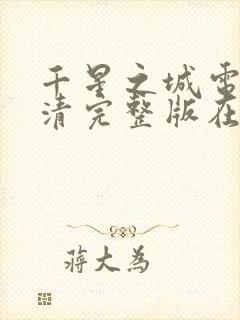 千星之城电
清完整版在
蒋大為